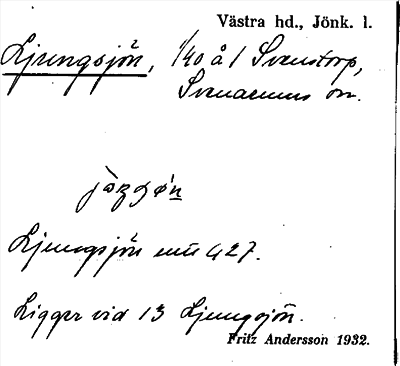 Västra hd., Jönk. l.
Ljungsjön, 1/40 å 1 Svenstorp,
Svenarums sn.
Ljungsjön 427.
Ligger vid 13 Ljungsjön.
Fritz Andersson 1932.